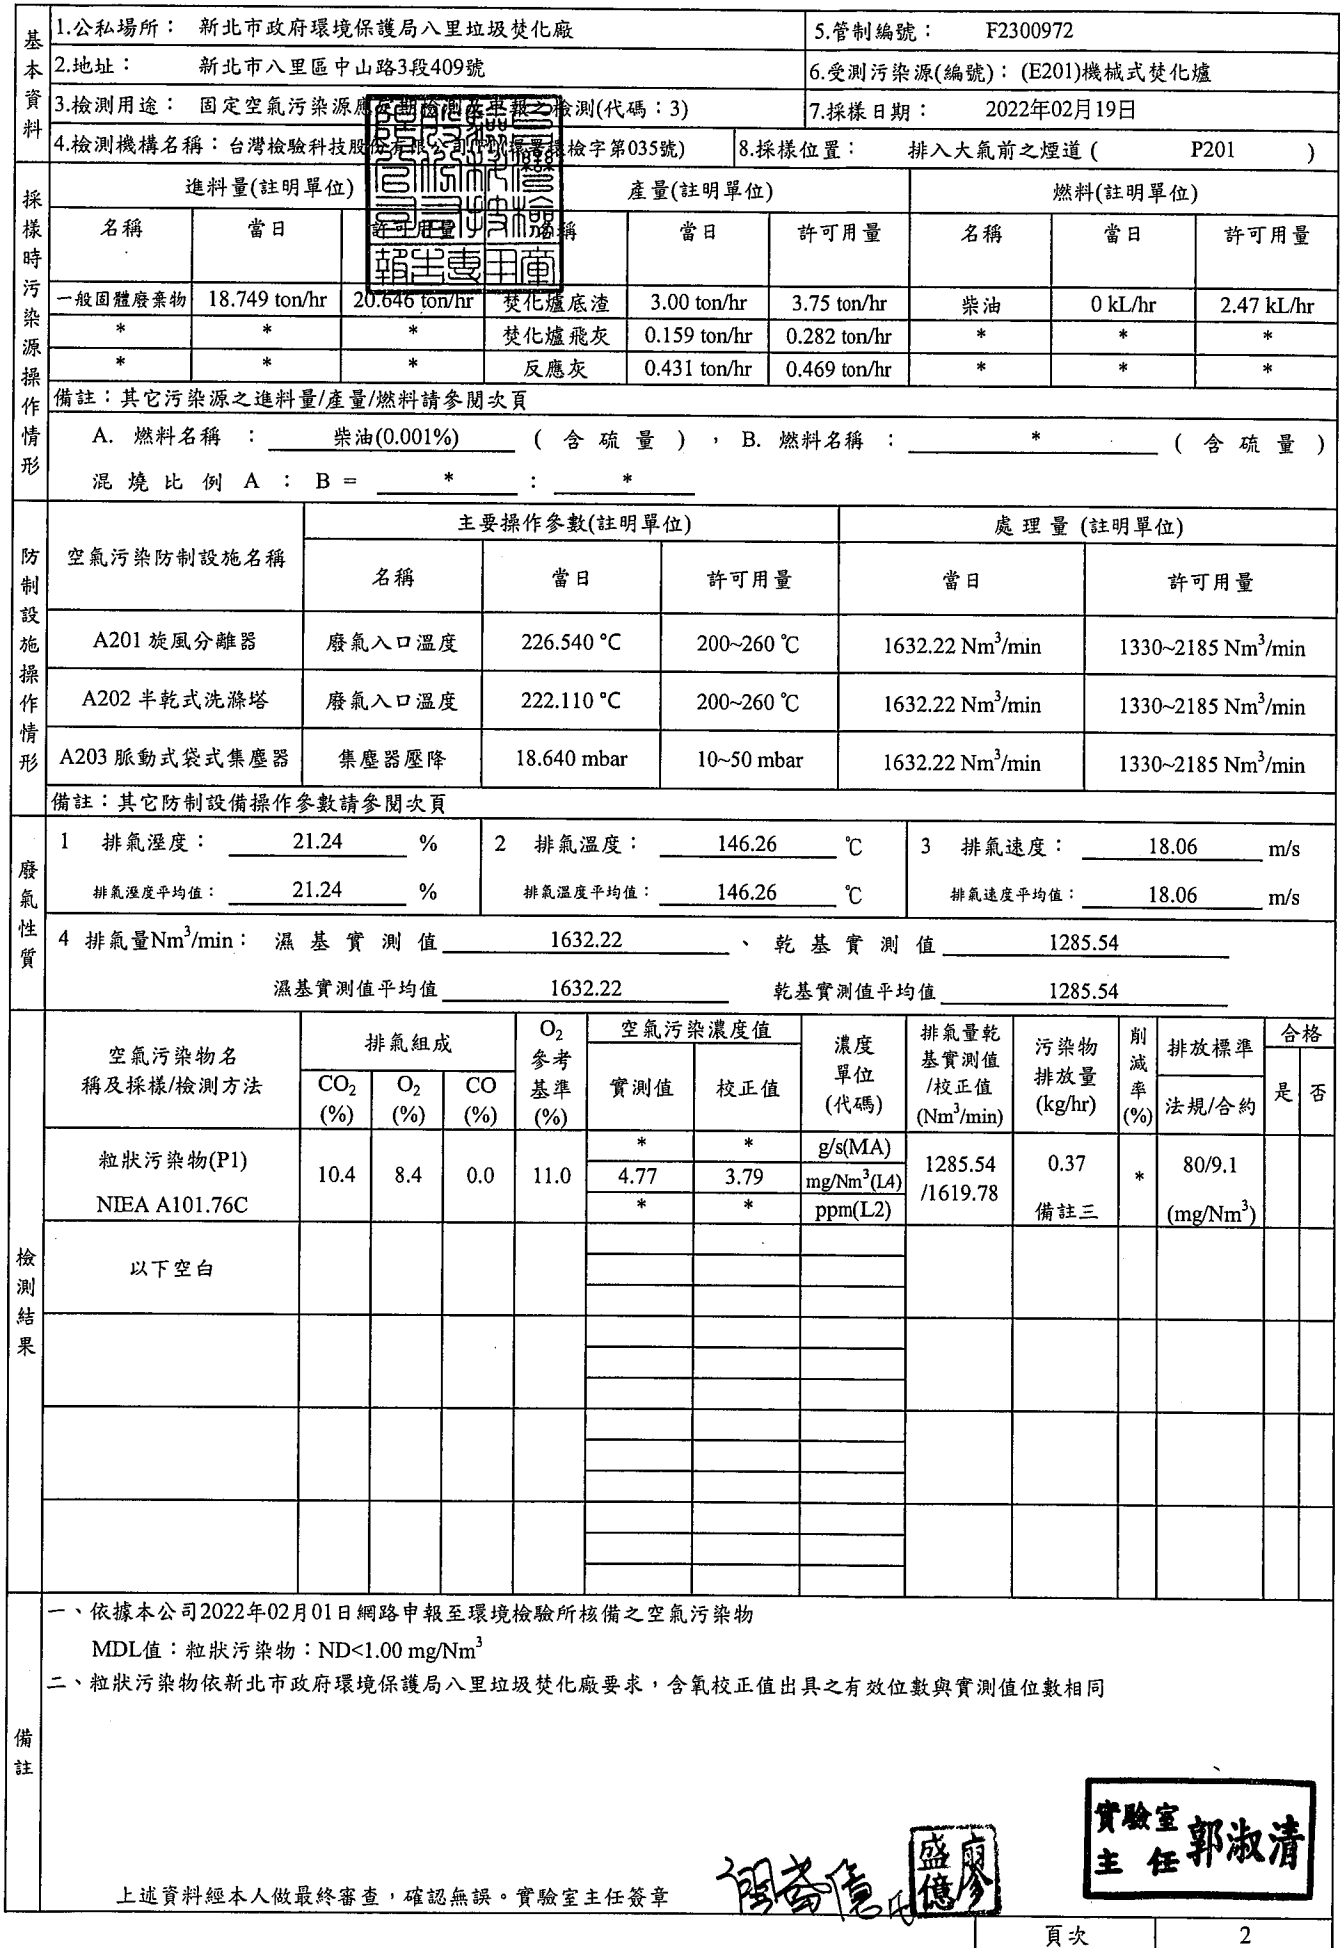 基本資料
1.公私場所： 新北市政府環境保護局八里垃圾焚化廠 5.管制編號： F2300972
2.地址： 新北市八里區中山路3段409號 6.受測污染源(編號)： (E201)機械式焚化爐
3.檢測用途： 固定空氣污染源應定期檢測及申報之檢測(代碼：3) 7.採樣日期： 2022年02月19日
4.檢測機構名稱：台灣檢驗科技股份有限公司 環署環檢字第035號) 8.採樣位置： 排入大氣前之煙道 ( P201 )
採樣時污染源操作情形
進料量(註明單位) 產量(註明單位) 燃料(註明單位)
名稱 當日 許可用量 名稱 當日 許可用量 名稱 當日 許可用量
一般固體廢棄物 18.749 ton/hr 20.646 ton/hr 焚化爐底渣 3.00 ton/hr 3.75 ton/hr 柴油 0 kL/hr 2.47 kL/hr
* * * 焚化爐飛灰 0.159 ton/hr 0.282 ton/hr * * *
* * * 反應灰 0.431 ton/hr 0.469 ton/hr * * *
備註：其它污染源之進料量/產量/燃料請參閱次頁
A. 燃料名稱 ： 柴油(0.001%) ( 含 硫 量 ) ，B. 燃料名稱 ： * ( 含 硫 量 )
混 燒 比 例 A ： B = * : *
防制設施操作情形
空氣污染防制設施名稱 主要操作參數(註明單位) 處 理 量 (註明單位)
名稱 當日 許可用量 當日 許可用量
A201 旋風分離器 廢氣入口溫度 226.540 ℃ 200~260 ℃ 1632.22 Nm³/min 1330~2185 Nm³/min
A202 半乾式洗滌塔 廢氣入口溫度 222.110 ℃ 200~260 ℃ 1632.22 Nm³/min 1330~2185 Nm³/min
A203 脈動式袋式集塵器 集塵器壓降 18.640 mbar 10~50 mbar 1632.22 Nm³/min 1330~2185 Nm³/min
備註：其它防制設備操作參數請參閱次頁
廢氣性質
1 排氣溼度： 21.24 % 2 排氣溫度： 146.26 ℃ 3 排氣速度： 18.06 m/s
排氣溼度平均值： 21.24 % 排氣溫度平均值： 146.26 ℃ 排氣速度平均值： 18.06 m/s
4 排氣量Nm³/min： 濕 基 實 測 值 1632.22 、 乾 基 實 測 值 1285.54
濕基實測值平均值 1632.22 乾基實測值平均值 1285.54
檢測結果
空氣污染物名稱及採樣/檢測方法 排氣組成 O₂參考基準(%) 空氣污染濃度值 濃度單位(代碼) 排氣量乾基實測值/校正值(Nm³/min) 污染物排放量(kg/hr) 削減率(%) 排放標準 合格
CO₂(%) O₂(%) CO(%) 實測值 校正值 法規/合約 是 否
粒狀污染物(P1) 10.4 8.4 0.0 11.0 * * g/s(MA) 1285.54 0.37 * 80/9.1
4.77 3.79 mg/Nm³(L4) /1619.78
NIEA A101.76C * * ppm(L2) 備註三 (mg/Nm³)
以下空白
備註
一、依據本公司2022年02月01日網路申報至環境檢驗所核備之空氣污染物
MDL值：粒狀污染物：ND<1.00 mg/Nm³
二、粒狀污染物依新北市政府環境保護局八里垃圾焚化廠要求，含氧校正值出具之有效位數與實測值位數相同
實驗室主任 郭淑清
廖盛億
上述資料經本人做最終審查，確認無誤。實驗室主任簽章
頁次 2